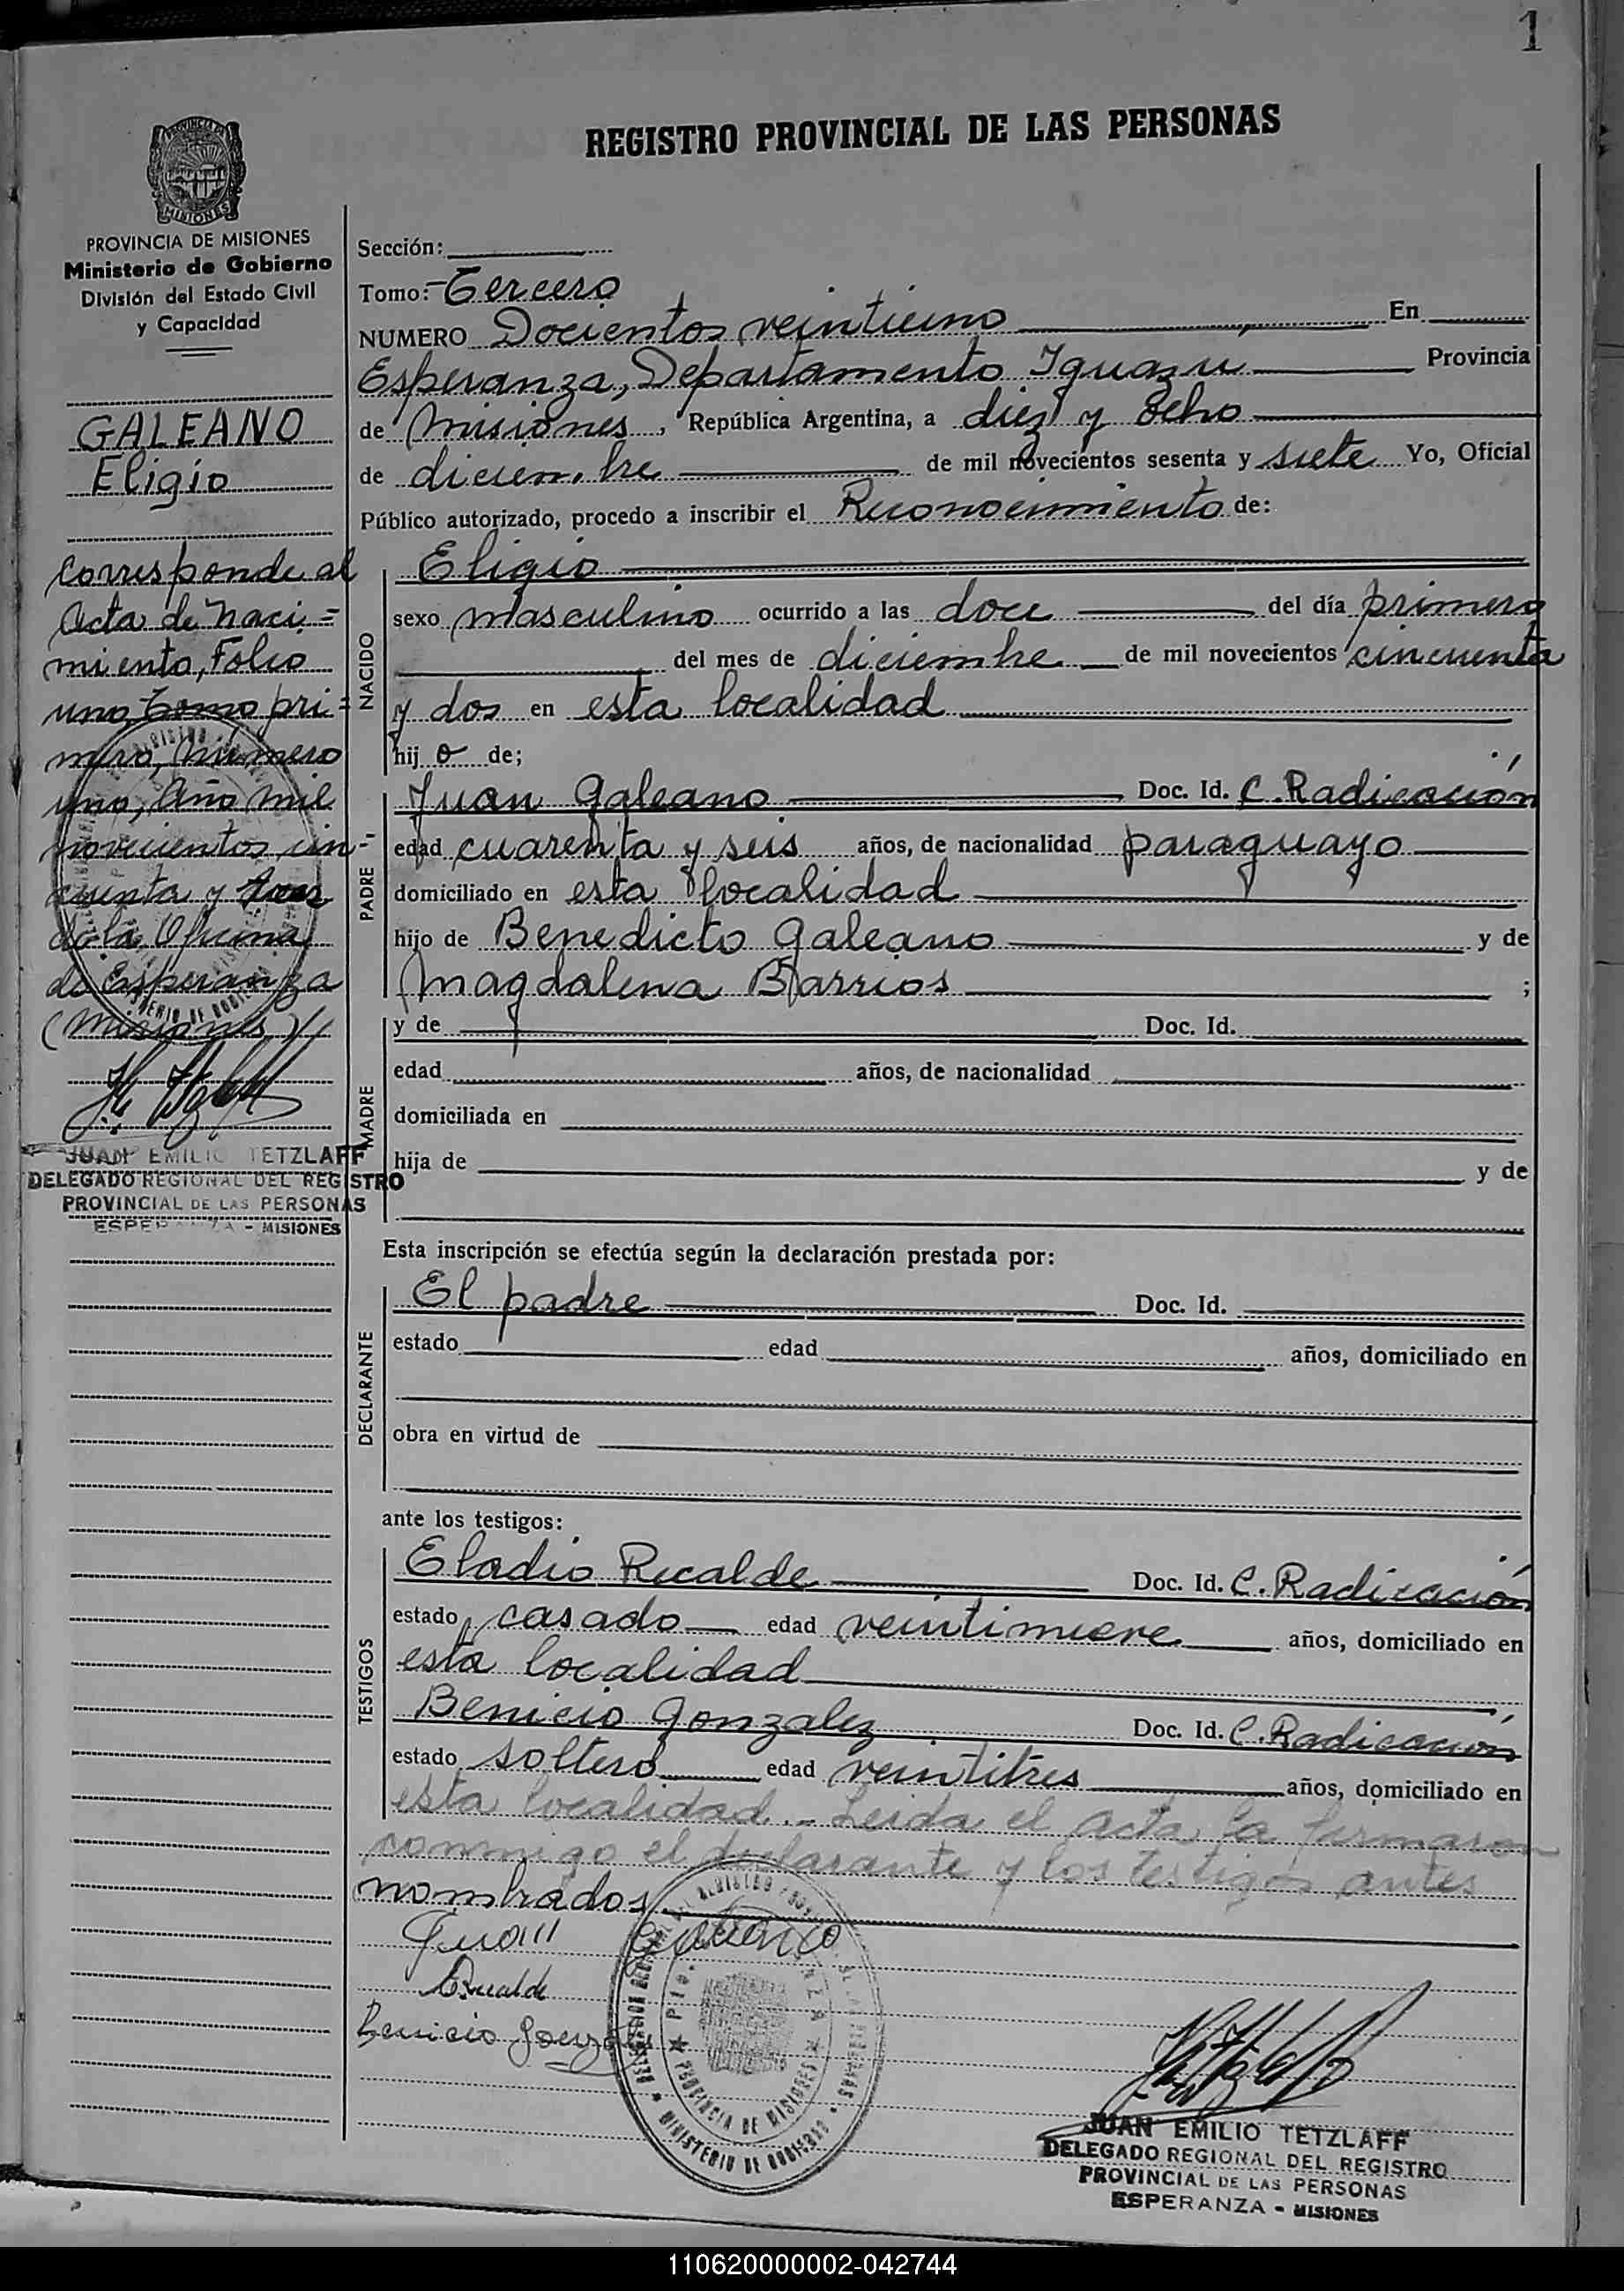 1
REGISTRO PROVINCIAL DE LAS PERSONAS
PROVINCIA DE MISIONES
Ministerio de Gobierno
División del Estado Civil
y Capacidad
GALEANO
Eligio
Corresponde al
Acta de Naci=
miento, Folio
uno, Tomo pri=
mero, Número
uno, Año mil
novecientos cin-
cuenta y tres
de la Oficina
de Esperanza
(Misiones)
JUAN EMILIO TETZLAFF
DELEGADO REGIONAL DEL REGISTRO
PROVINCIAL DE LAS PERSONAS
ESPERANZA - MISIONES
Sección:
Tomo:- Tercero
NUMERO Docientos veintiuno En
Esperanza, Departamento Iguazú Provincia
de Misiones, República Argentina, a diez y ocho
de diciembre de mil novecientos sesenta y siete Yo, Oficial
Público autorizado, procedo a inscribir el Reconocimiento de:
NACIDO
Eligio
sexo masculino ocurrido a las doce del día primero
del mes de diciembre de mil novecientos cincuenta
y dos en esta localidad
hij o de;
PADRE
Juan Galeano Doc. Id. C. Radicación
edad cuarenta y seis años, de nacionalidad paraguayo
domiciliado en esta localidad
hijo de Benedicto Galeano y de
Magdalena Barrios ;
MADRE
y de Doc. Id.
edad años, de nacionalidad
domiciliada en
hija de y de
Esta inscripción se efectúa según la declaración prestada por:
DECLARANTE
El padre Doc. Id.
estado edad años, domiciliado en
obra en virtud de
ante los testigos:
TESTIGOS
Eladio Recalde Doc. Id. C. Radicación
estado casado edad veintinueve años, domiciliado en
esta localidad
Benicio Gonzalez Doc. Id. C. Radicación
estado soltero edad veintitres años, domiciliado en
esta localidad.- Leida el acta la firmaron
conmigo el declarante y los testigos antes
nombrados
Juan Galeano
ERecalde
Benicio Gonzalez
PROVINCIA DE MISIONES
MINISTERIO DE GOBIERNO
JUAN EMILIO TETZLAFF
DELEGADO REGIONAL DEL REGISTRO
PROVINCIAL DE LAS PERSONAS
ESPERANZA - MISIONES
110620000002-042744